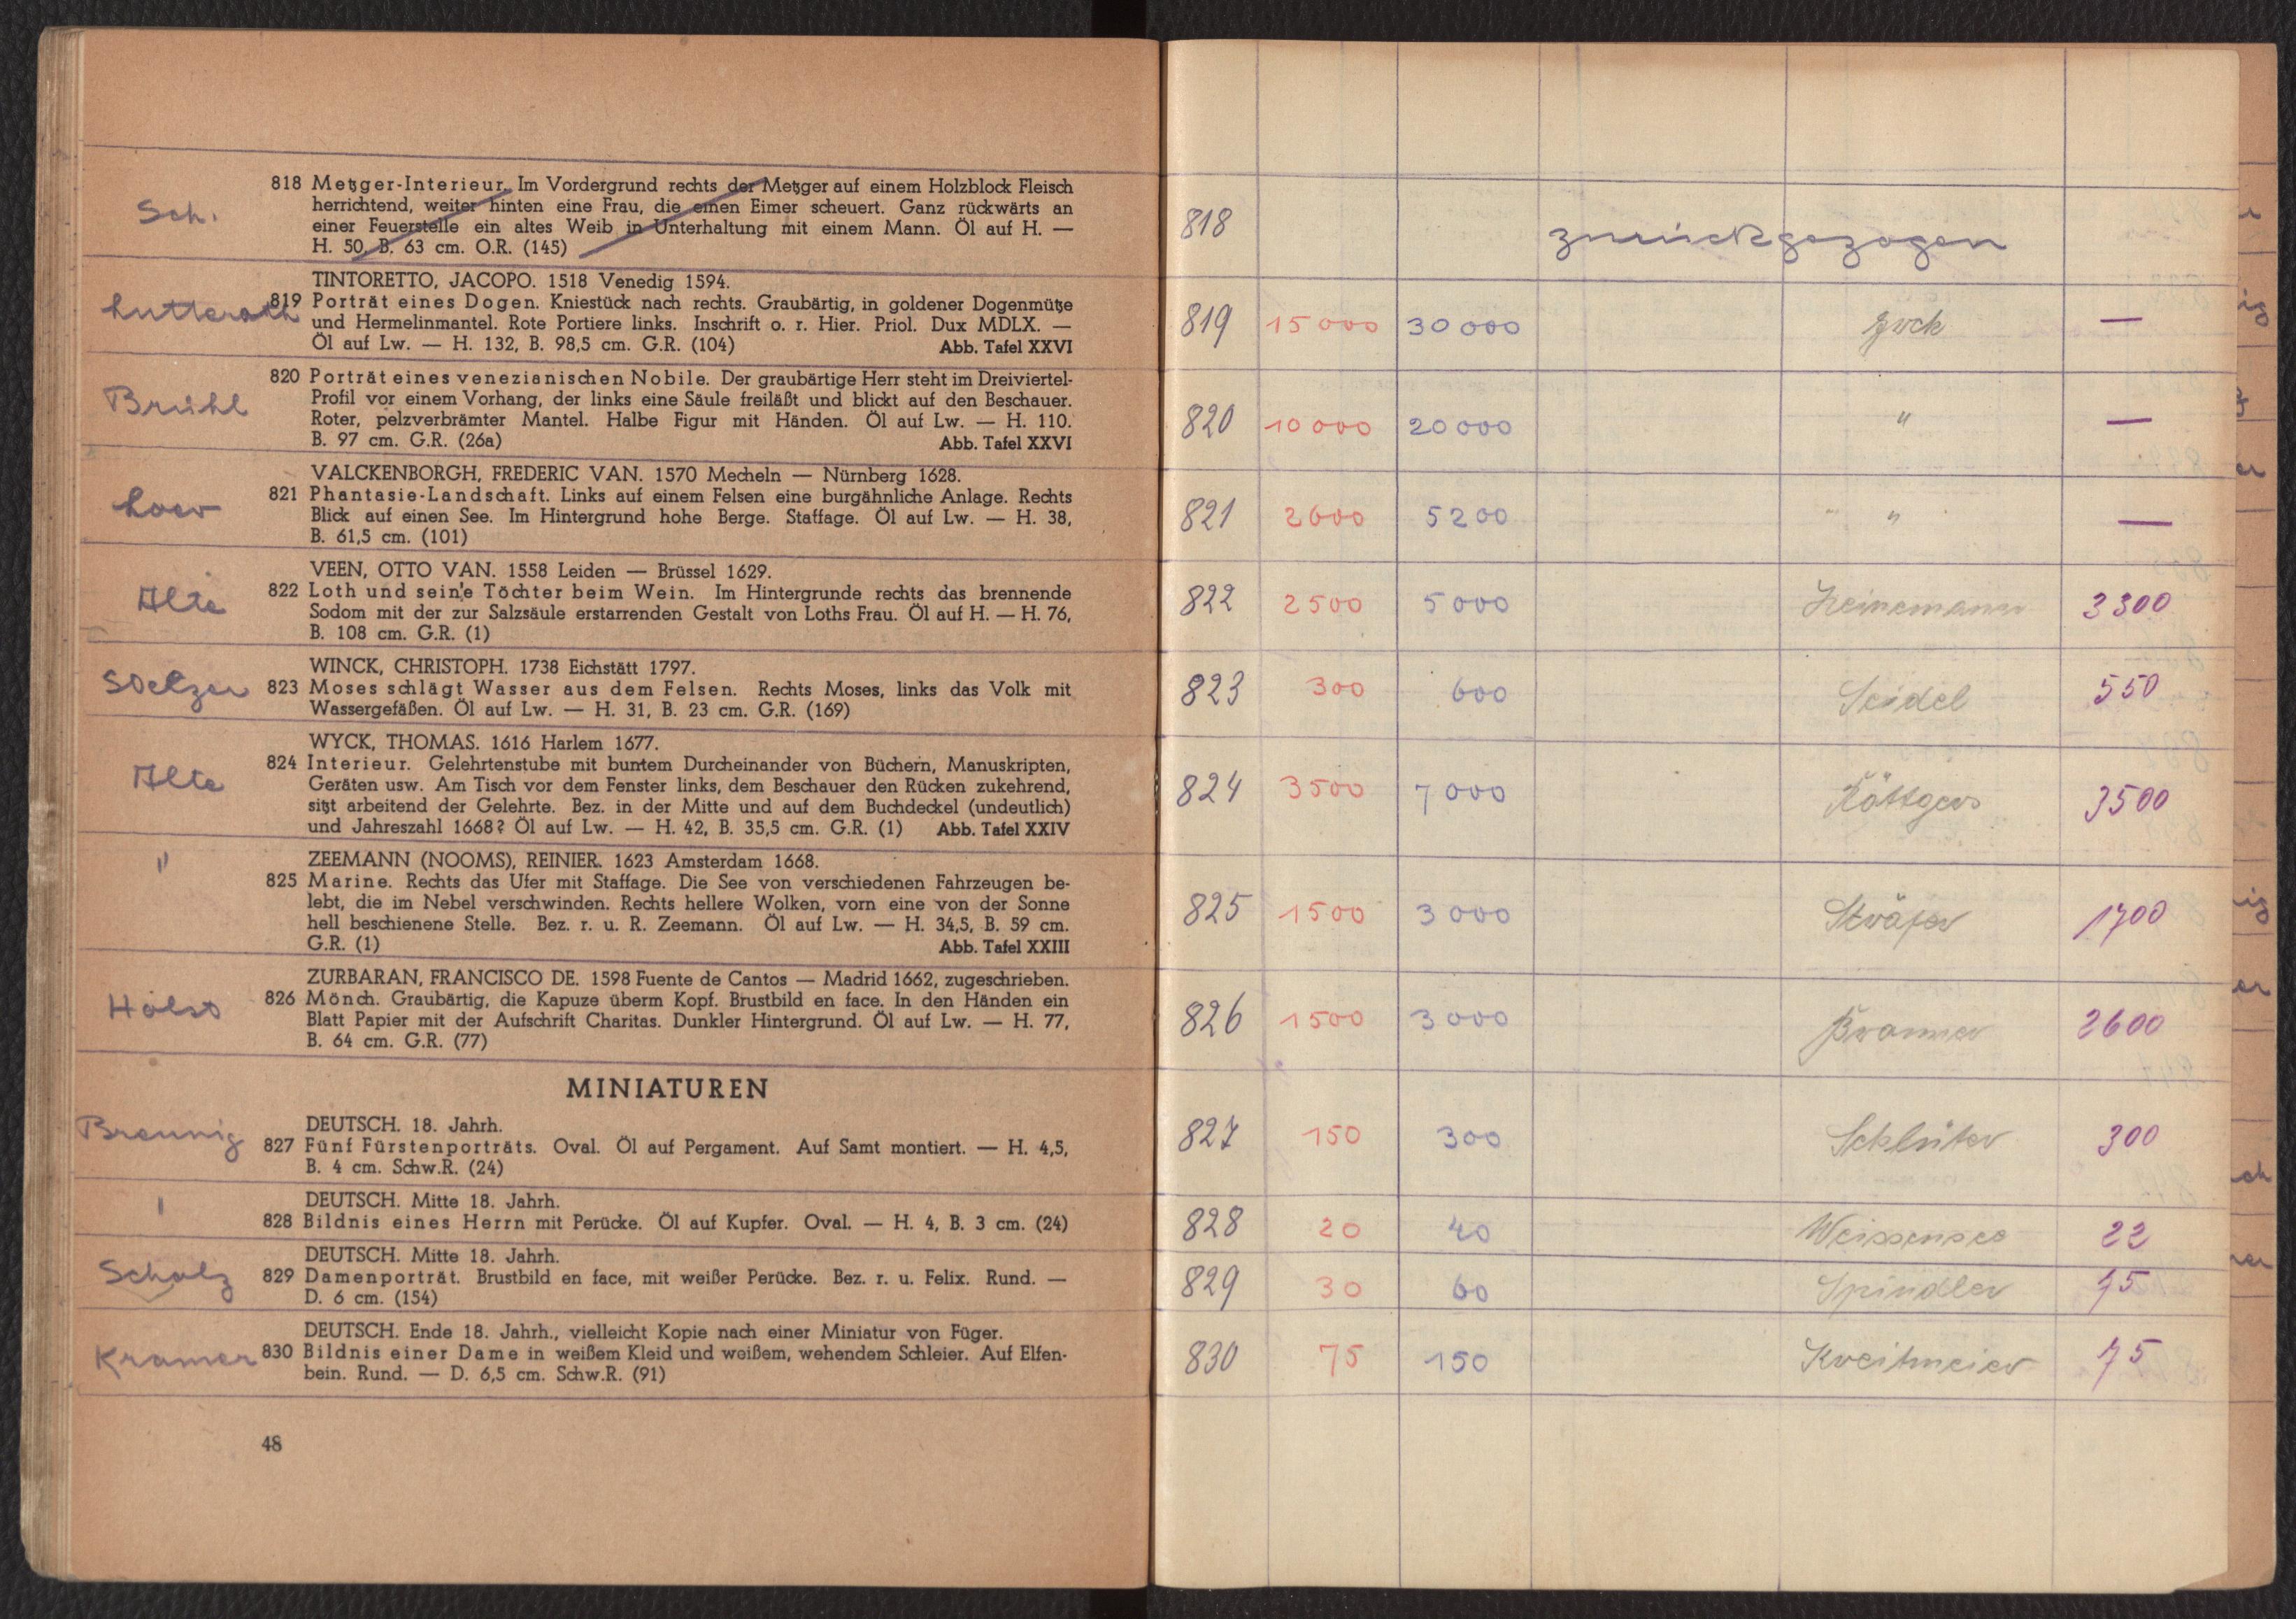 Sch.
818 Metzger-Interieur. Im Vordergrund rechts der Metzger auf einem Holzblock Fleisch
herrichtend, weiter hinten eine Frau, die einen Eimer scheuert. Ganz rückwärts an
einer Feuerstelle ein altes Weib in Unterhaltung mit einem Mann. Öl auf H. —
H. 50, B. 63 cm. O.R. (145)
TINTORETTO, JACOPO. 1518 Venedig 1594.
Lutteroth
819 Porträt eines Dogen. Kniestück nach rechts. Graubärtig, in goldener Dogenmütze
und Hermelinmantel. Rote Portiere links. Inschrift o. r. Hier. Priol. Dux MDLX. —
Öl auf Lw. — H. 132, B. 98,5 cm. G.R. (104) Abb. Tafel XXVI
Brühl
820 Porträt eines venezianischen Nobile. Der graubärtige Herr steht im Dreiviertel-
Profil vor einem Vorhang, der links eine Säule freiläßt und blickt auf den Beschauer.
Roter, pelzverbrämter Mantel. Halbe Figur mit Händen. Öl auf Lw. — H. 110.
B. 97 cm. G.R. (26a) Abb. Tafel XXVI
VALCKENBORGH, FREDERIC VAN. 1570 Mecheln — Nürnberg 1628.
821 Phantasie-Landschaft. Links auf einem Felsen eine burgähnliche Anlage. Rechts
Blick auf einen See. Im Hintergrund hohe Berge. Staffage. Öl auf Lw. — H. 38,
B. 61,5 cm. (101)
VEEN, OTTO VAN. 1558 Leiden — Brüssel 1629.
Alte
822 Loth und seine Töchter beim Wein. Im Hintergrunde rechts das brennende
Sodom mit der zur Salzsäule erstarrenden Gestalt von Loths Frau. Öl auf H. — H. 76,
B. 108 cm. G.R. (1)
WINCK, CHRISTOPH. 1738 Eichstätt 1797.
823 Moses schlägt Wasser aus dem Felsen. Rechts Moses, links das Volk mit
Wassergefäßen. Öl auf Lw. — H. 31, B. 23 cm. G.R. (169)
WYCK, THOMAS. 1616 Harlem 1677.
Alte
824 Interieur. Gelehrtenstube mit buntem Durcheinander von Büchern, Manuskripten,
Geräten usw. Am Tisch vor dem Fenster links, dem Beschauer den Rücken zukehrend,
sitzt arbeitend der Gelehrte. Bez. in der Mitte und auf dem Buchdeckel (undeutlich)
und Jahreszahl 1668? Öl auf Lw. — H. 42, B. 35,5 cm. G.R. (1) Abb. Tafel XXIV
"
ZEEMANN (NOOMS), REINIER. 1623 Amsterdam 1668.
825 Marine. Rechts das Ufer mit Staffage. Die See von verschiedenen Fahrzeugen be-
lebt, die im Nebel verschwinden. Rechts hellere Wolken, vorn eine von der Sonne
hell beschienene Stelle. Bez. r. u. R. Zeemann. Öl auf Lw. — H. 34,5, B. 59 cm.
G.R. (1) Abb. Tafel XXIII
ZURBARAN, FRANCISCO DE. 1598 Fuente de Cantos — Madrid 1662, zugeschrieben.
Holst
826 Mönch. Graubärtig, die Kapuze überm Kopf. Brustbild en face. In den Händen ein
Blatt Papier mit der Aufschrift Charitas. Dunkler Hintergrund. Öl auf Lw. — H. 77,
B. 64 cm. G.R. (77)
MINIATUREN
DEUTSCH. 18. Jahrh.
Breunig
827 Fünf Fürstenporträts. Oval. Öl auf Pergament. Auf Samt montiert. — H. 4,5,
B. 4 cm. Schw.R. (24)
DEUTSCH. Mitte 18. Jahrh.
828 Bildnis eines Herrn mit Perücke. Öl auf Kupfer. Oval. — H. 4, B. 3 cm. (24)
DEUTSCH. Mitte 18. Jahrh.
Scholz
829 Damenporträt. Brustbild en face, mit weißer Perücke. Bez. r. u. Felix. Rund. —
D. 6 cm. (154)
DEUTSCH. Ende 18. Jahrh., vielleicht Kopie nach einer Miniatur von Füger.
Kramer
830 Bildnis einer Dame in weißem Kleid und weißem, wehendem Schleier. Auf Elfen-
bein. Rund. — D. 6,5 cm. Schw.R. (91)
48
818 zurückgezogen
819 15000 30000 —
820 10000 20000 " —
821 2600 5200 " " —
822 2500 5000 Heinemann 3300
823 300 600 Seidel 550
824 3500 7000 Röttgers 3500
825 1500 3000 Sträter 1700
826 1500 3000 2600
827 150 300 Schlüter 300
828 20 40 Weissensee 22
829 30 60 Spindler 75
830 75 150 Kreitmeier 75